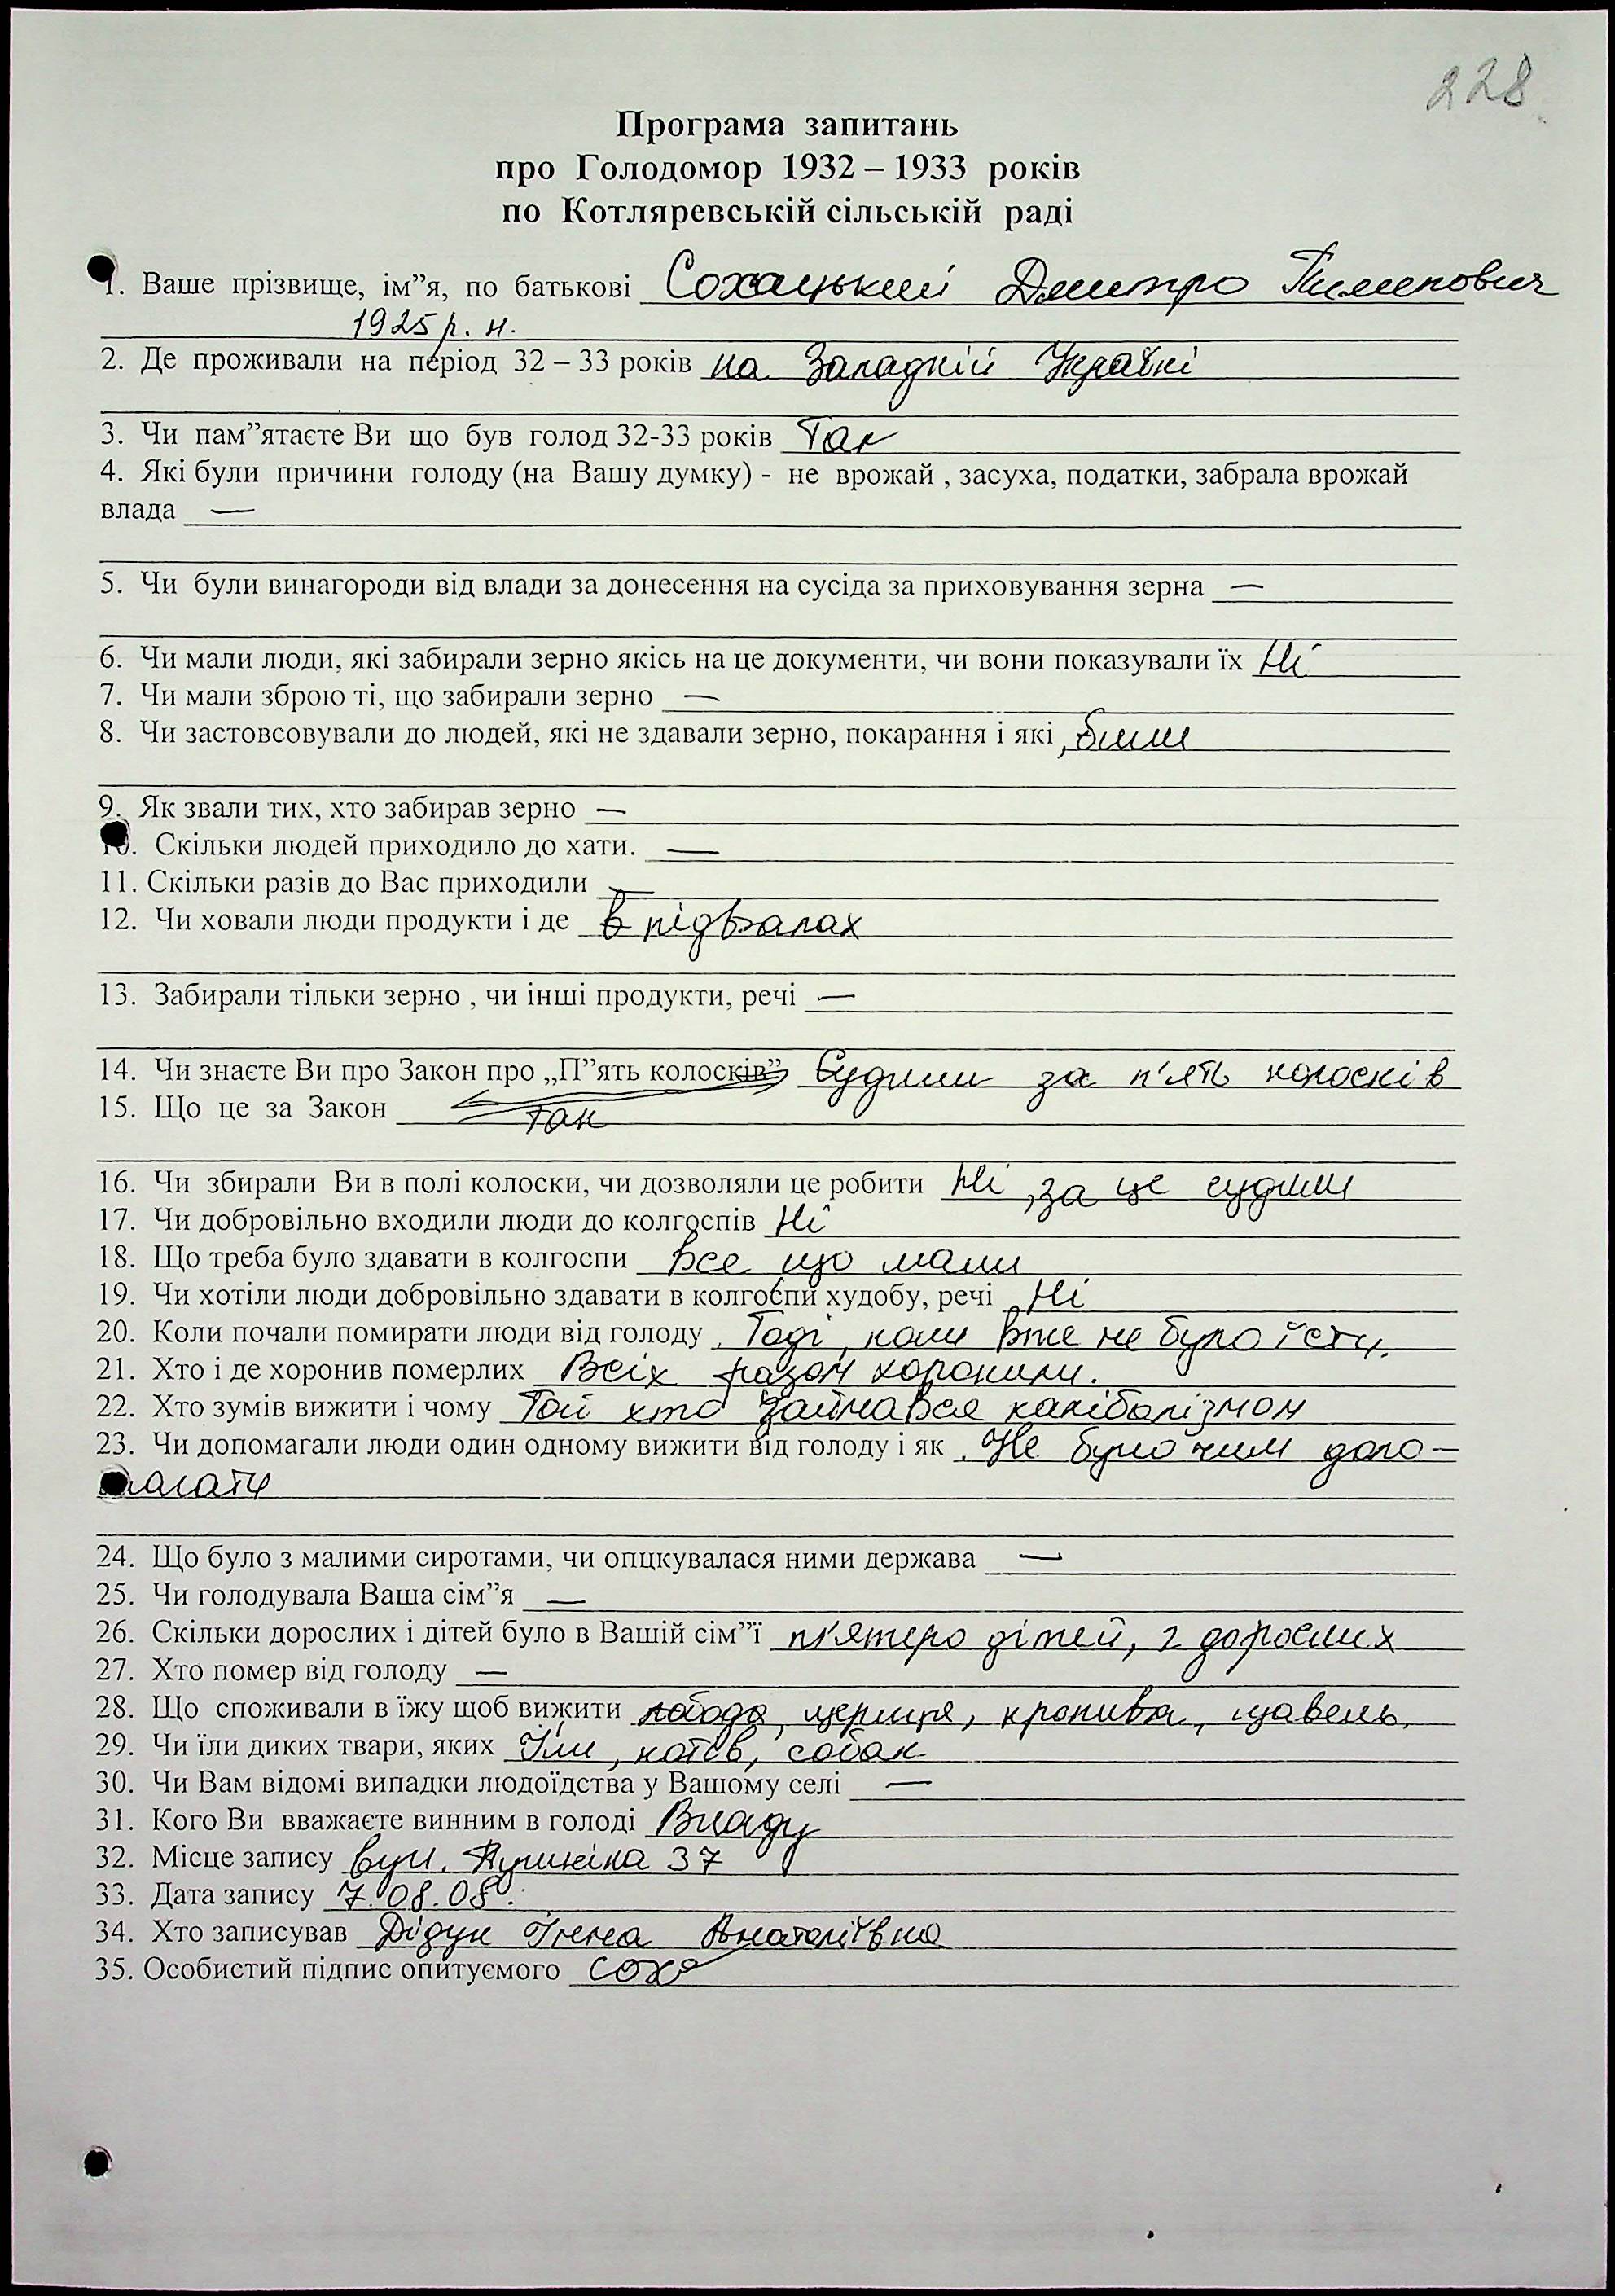 228
Програма запитань
про Голодомор 1932 – 1933 років
по Котляревській сільській раді
1. Ваше прізвище, ім”я, по батькові Сохацький Дмитро Пилипович
1925 р. н.
2. Де проживали на період 32 – 33 років на Западній Україні
3. Чи пам”ятаєте Ви що був голод 32-33 років Так
4. Які були причини голоду (на Вашу думку) - не врожай , засуха, податки, забрала врожай
влада —
5. Чи були винагороди від влади за донесення на сусіда за приховування зерна —
6. Чи мали люди, які забирали зерно якісь на це документи, чи вони показували їх Ні
7. Чи мали зброю ті, що забирали зерно —
8. Чи застовсовували до людей, які не здавали зерно, покарання і які, били
9. Як звали тих, хто забирав зерно —
10. Скільки людей приходило до хати. —
11. Скільки разів до Вас приходили —
12. Чи ховали люди продукти і де в підвалах
13. Забирали тільки зерно , чи інші продукти, речі —
14. Чи знаєте Ви про Закон про „П”ять колосків” Судили за п'ять колосків
15. Що це за Закон Так
16. Чи збирали Ви в полі колоски, чи дозволяли це робити Ні, за це судили
17. Чи добровільно входили люди до колгоспів Ні
18. Що треба було здавати в колгоспи Все що мали
19. Чи хотіли люди добровільно здавати в колгоспи худобу, речі Ні
20. Коли почали помирати люди від голоду Тоді, коли вже не було їсти.
21. Хто і де хоронив померлих Всіх разом хоронили.
22. Хто зумів вижити і чому Той хто займався канібалізмом
23. Чи допомагали люди один одному вижити від голоду і як Не було чим допо-
магати
24. Що було з малими сиротами, чи опцкувалася ними держава —
25. Чи голодувала Ваша сім”я —
26. Скільки дорослих і дітей було в Вашій сім”ї п'ятеро дітей, 2 дорослих
27. Хто помер від голоду —
28. Що споживали в їжу щоб вижити лобода, щериця, кропива, щавель.
29. Чи їли диких твари, яких Їли, котів, собак
30. Чи Вам відомі випадки людоїдства у Вашому селі —
31. Кого Ви вважаєте винним в голоді Владу
32. Місце запису вул. Пушкіна 37
33. Дата запису 7.08.08.
34. Хто записував Дідук Інна Анатоліївна
35. Особистий підпис опитуємого Соха